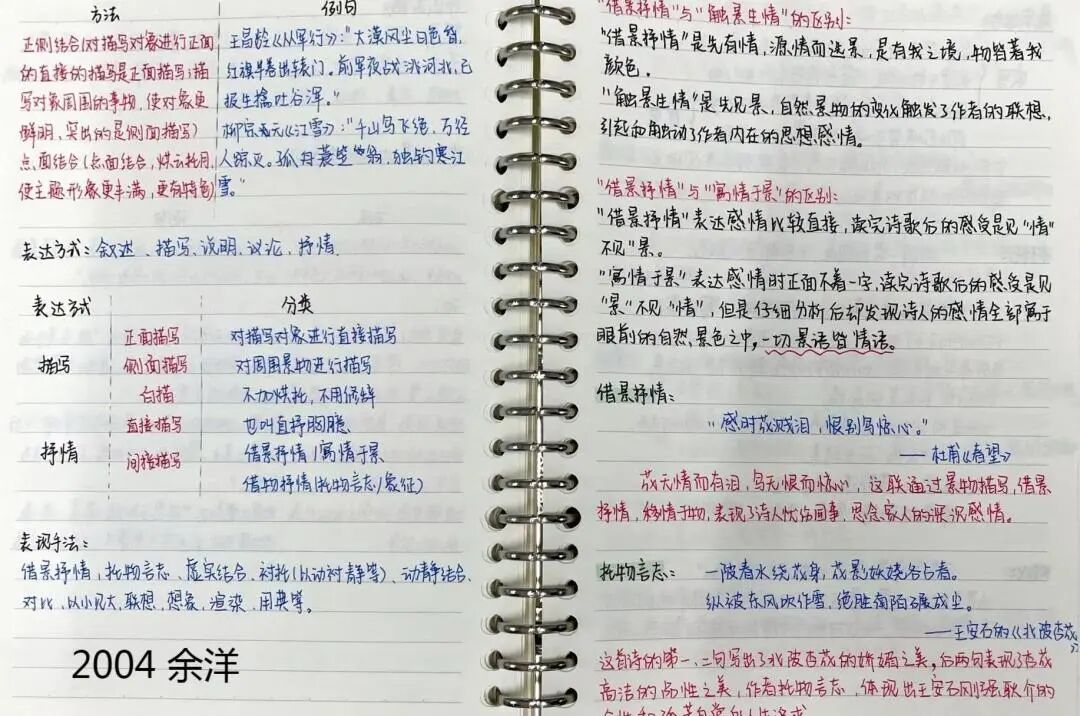 方法 例句
正侧结合(对描写对象进行正面 王昌龄《从军行》:"大漠风尘日色昏,
的直接的描写是正面描写;描 红旗半卷出辕门。前军夜战洮河北,已
写对象周围的事物,使对象更 报生擒吐谷浑。"
鲜明,突出的是侧面描写) 柳宗元《江雪》:"千山鸟飞绝,万径
点、面结合(点面结合,烘云托月, 人踪灭。孤舟蓑笠翁,独钓寒江
使主题形象更丰满,更有特色) 雪。"
表达方式:叙述、描写、说明、议论、抒情.
表达方式 分类
正面描写 对描写对象进行直接描写
描写 侧面描写 对周围景物进行描写
白描 不加烘托,不用修辞
直接描写 也叫直抒胸臆
抒情 间接描写 借景抒情/寓情于景
借物抒情(托物言志/象征)
表现手法:
借景抒情,托物言志、虚实结合、衬托(以动衬静等)、动静结合、
对比,以小见大,联想,想象,渲染,用典等。
2004 余洋
"借景抒情"与"触景生情"的区别:
"借景抒情"是先有情,源情而选景,是有我之境,物皆著我
颜色.
"触景生情"是先见景,自然景物的变化触发了作者的联想,
引起和触动了作者内在的思想感情。
"借景抒情"与"寓情于景"的区别:
"借景抒情"表达感情比较直接,读完诗歌后的感受是见"情"
不见"景。
"寓情于景"表达感情时正面不着一字,读完诗歌后的感受是见
"景"不见"情",但是仔细分析后却发现诗人的感情全部寓于
眼前的自然景色之中,一切景语皆情语。
借景抒情:
"感时花溅泪,恨别鸟惊心。"
——杜甫《春望》
花无情而有泪,鸟无恨而惊心,这联通过景物描写,借景
抒情,移情于物,表现了诗人忧伤国事,思念家人的深沉感情。
托物言志: 一陂春水绕花身,花影妖娆各占春。
纵被东风吹作雪,绝胜南陌碾成尘。
——王安石的《北陂杏花》
这首诗的第一、二句写出了北陂杏花的娇媚之美,后两句表现了杏花
高洁的品性之美,作者托物言志,体现出王安石刚强耿介的